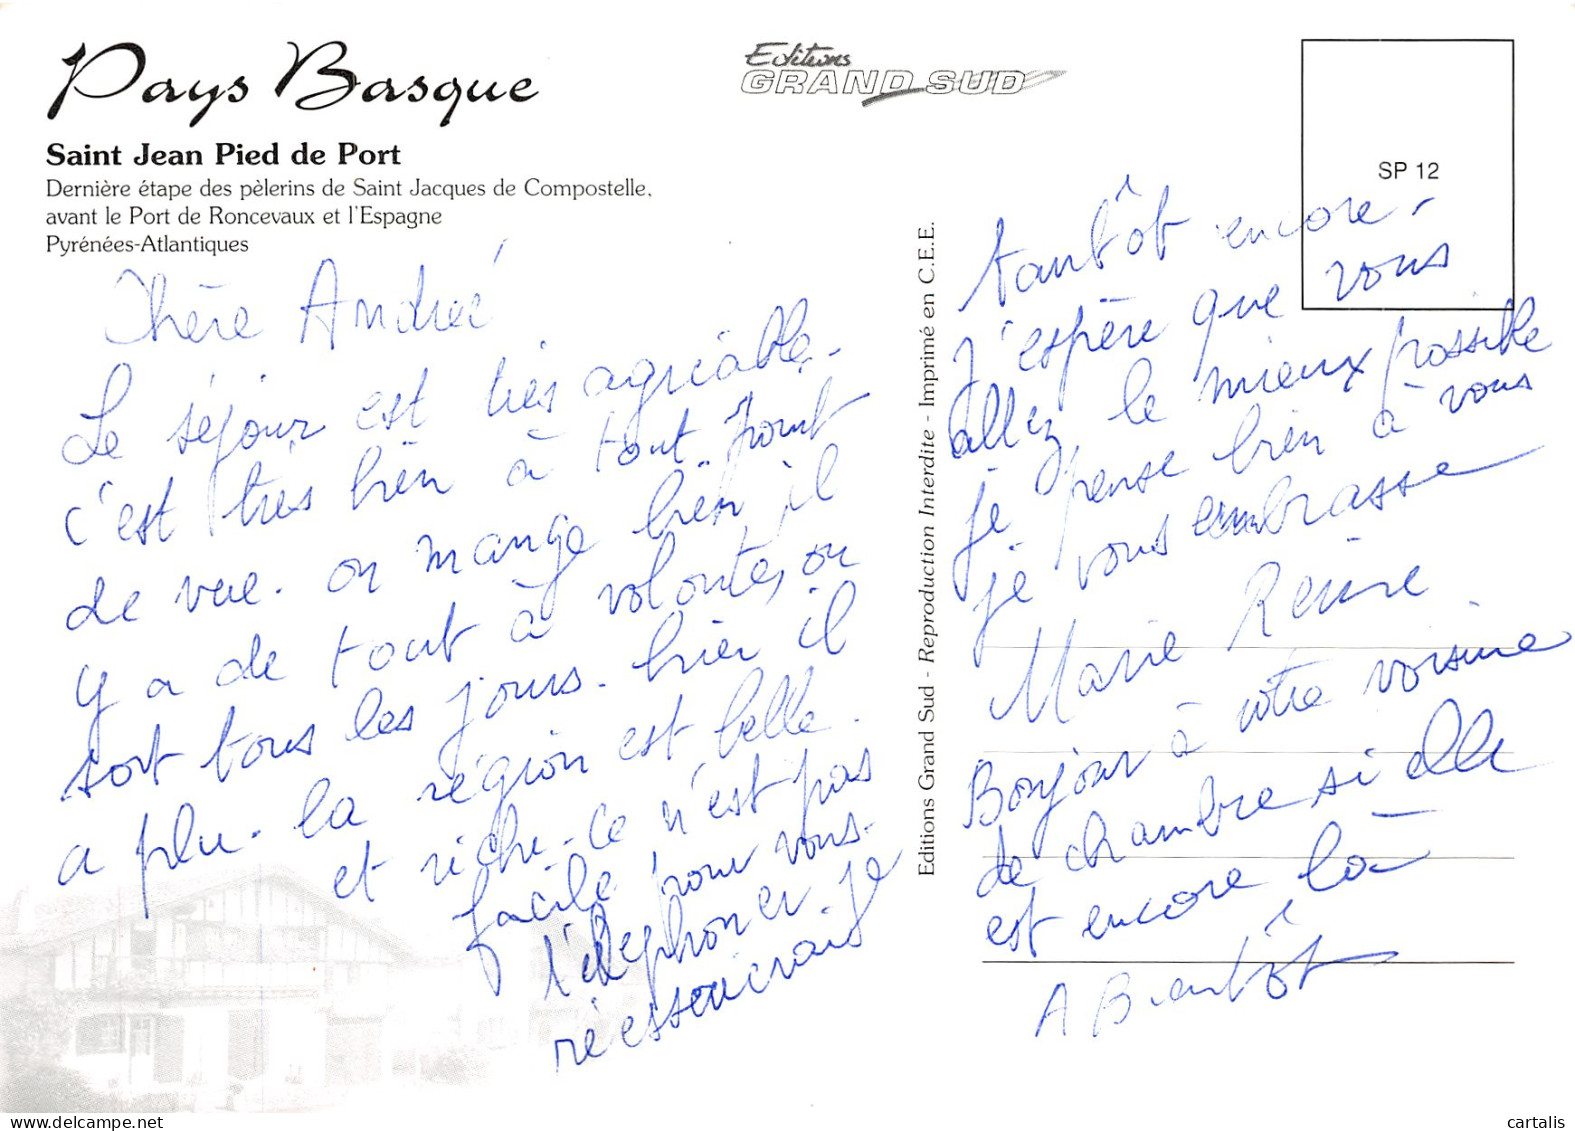 Pays Basque
Saint Jean Pied de Port
Dernière étape des pèlerins de Saint Jacques de Compostelle,
avant le Port de Roncevaux et l'Espagne
Pyrénées-Atlantiques
Editions
GRAND SUD
SP 12
Chère Andreé
Le séjour est très agréable.
c'est très bien à tout point
de vue. on mange bien il
y a de tout à volonté, on
sort tous les jours. hier il
a plu. la région est belle.
et riche. Ce n'est pas
facile pour vous
téléphoner. Je
réessaierais
Editions Grand Sud - Reproduction Interdite - Imprimé en C.E.E.
tantôt encore.
J'espère que vous
allez le mieux possible
je pense bien à vous
je vous embrasse
Marie Reine
Bonjour à votre voisine
de chambre si elle
est encore là
A Biantôt
delcampe.net
cartalis